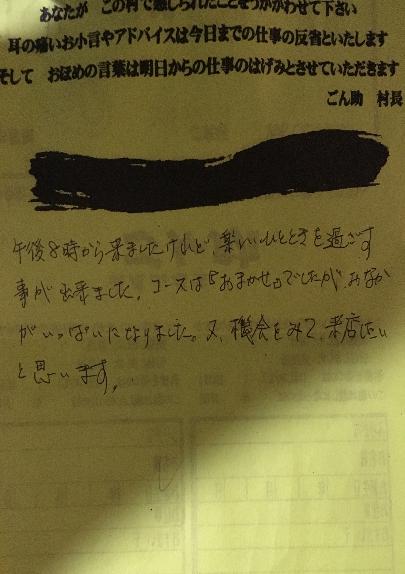 あなたが この村で感じられたことをうかがわせて下さい
耳の痛いお小言やアドバイスは今日までの仕事の反省といたします
そして おほめの言葉は明日からの仕事のはげみとさせていただきます
ごん助 村長
午後8時から来ましたけれど 楽しいひとときを過ごす
事が出来ました。コースは「おまかせ」でしたが、おなか
がいっぱいになりました。又、機会をみて、来店したい
と思います。